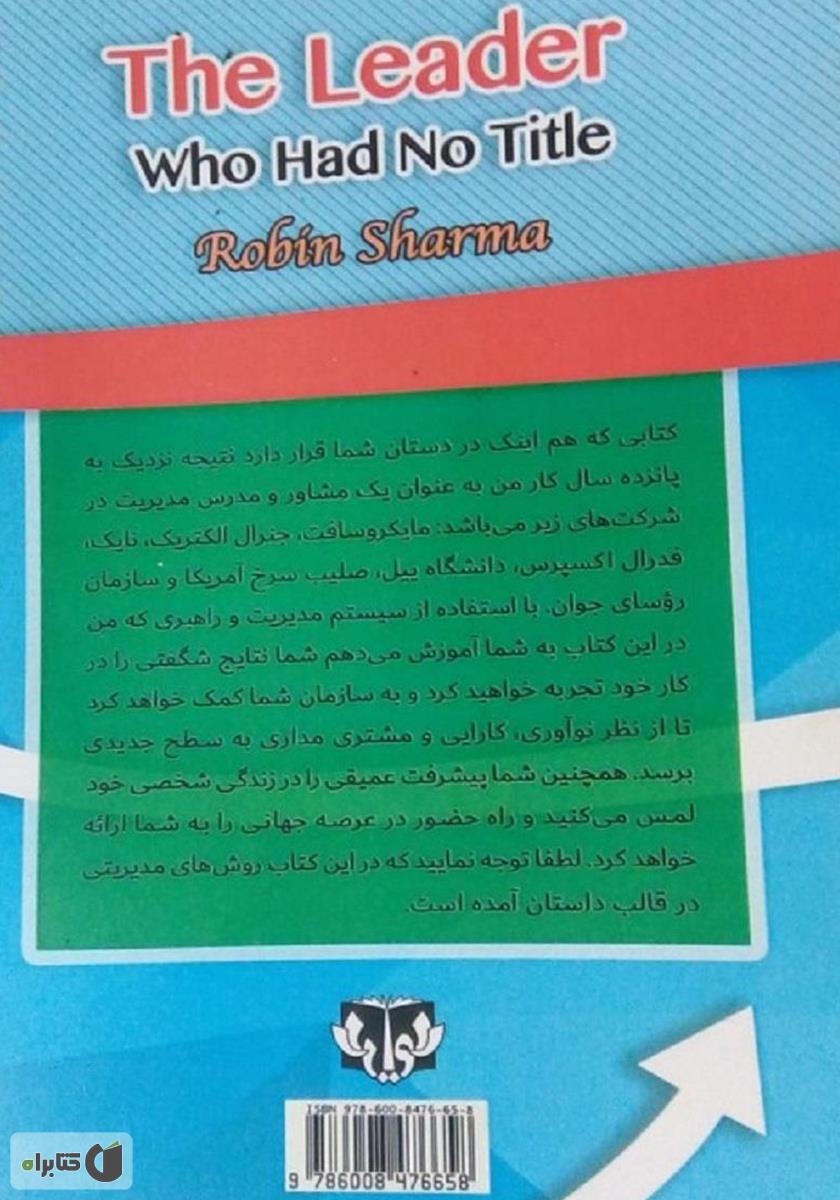 The Leader
Who Had No Title
Robin Sharma
کتابی که هم اینک در دستان شما قرار دارد نتیجه نزدیک به
پانزده سال کار من به عنوان یک مشاور و مدرس مدیریت در
شرکت‌های زیر می‌باشد: مایکروسافت، جنرال الکتریک، نایک،
فدرال اکسپرس، دانشگاه ییل، صلیب سرخ آمریکا و سازمان
رؤسای جوان. با استفاده از سیستم مدیریت و راهبری که من
در این کتاب به شما آموزش می‌دهم شما نتایج شگفتی را در
کار خود تجربه خواهید کرد و به سازمان شما کمک خواهد کرد
تا از نظر نوآوری، کارایی و مشتری مداری به سطح جدیدی
برسد. همچنین شما پیشرفت عمیقی را در زندگی شخصی خود
لمس می‌کنید و راه حضور در عرصه جهانی را به شما ارائه
خواهد کرد. لطفا توجه نمایید که در این کتاب روش‌های مدیریتی
در قالب داستان آمده است.
ISBN 978-600-8476-65-8
9 786008 476658
کتابراه